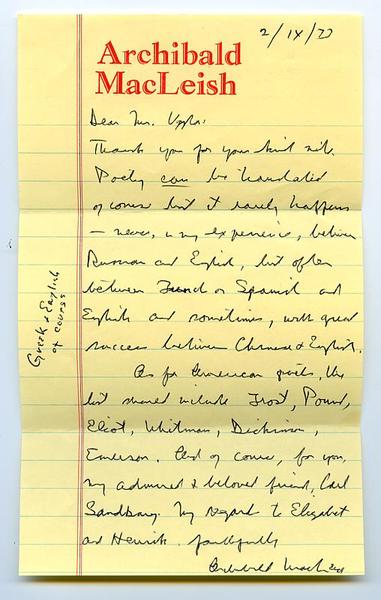 Archibald
MacLeish
2/IX/77
Dear Mr.
Thank you for your kind note.
Poetry can be translated
of course but it rarely happens
– never, in my experience, between
Russian and English, but often
between French or Spanish and
English and sometimes, with great
success between Chinese & English.
Greek & English
of course
As for American poets, the
list should include Frost, Pound,
Eliot, Whitman, Dickinson,
Emerson. And of course, for you,
my admired & beloved friend, Carl
Sandburg. My regards to Elizabeth
and Henrik. faithfully
Archibald MacLeish